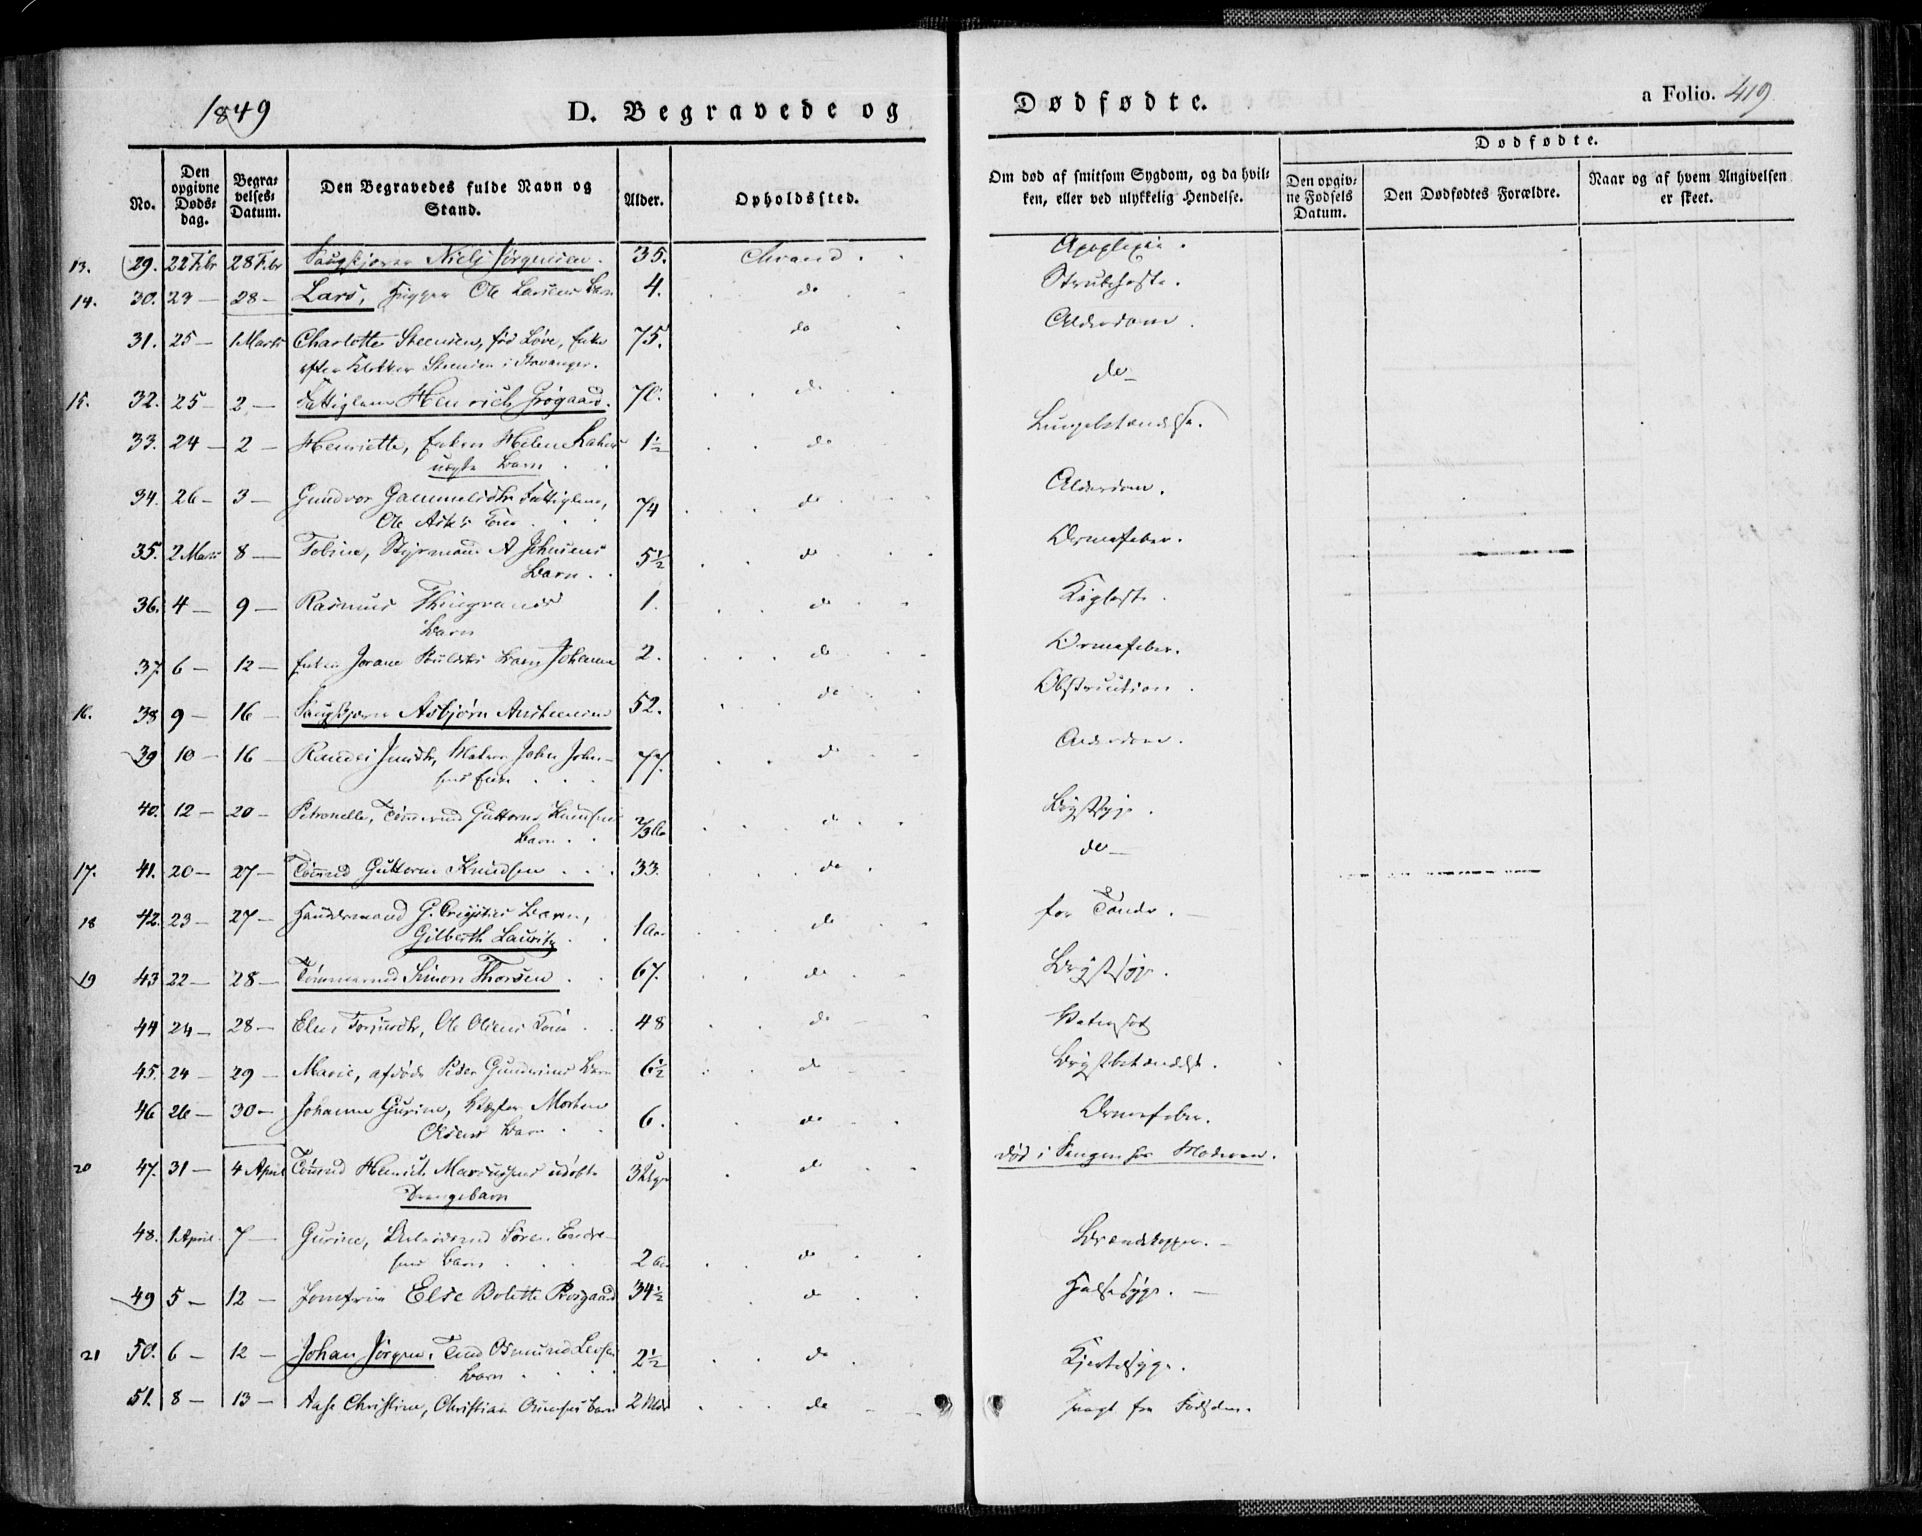 1849
D. Begravede og
Dødfødte.
a Folio. 419
No.
Den opgivne Døds-dag.
Begra-velses-Datum.
Den Begravedes fulde Navn og Stand.
Alder.
Opholdssted.
Om død af smitsom Sygdom, og da hvil-ken, eller ved ulykkelig Hendelse.
Dødfødte.
Den opgiv-ne Fødsels Datum.
Den Dødfødtes Forældre.
Naar og af hvem Angivelsen er skeet.
13. 29. 22 Febr 28 Febr Niels Jørgensen. 35. Apoplexie.
14. 30. 23 — 28 — Lars, Ole Larsens Barn 4. do Strubehoste.
31. 25 — 1 Marts Charlotte Steensen, fød Løve, Enke 75. do Alderdom.
efter Klokker Steensen i Stavanger.
15. 32. 25 — 2 — Fattiglem Henrich Grøgaard. 70. do do
33. 24 — 2 — Henriette, Enken Helene 1½ do Lungebetændelse.
uægte Barn
34. 26 — 3 — Gundvor Gammelsdtr Fattiglem, 74 do Alderdom.
Ole Kone
35. 2 Marts 8 — Tobine, Styrmand A Johnsens 5½ do Ormefeber.
Barn
36. 4 — 9 — Rasmus 1. do Kighoste
Barn
37 6 — 12 — Enken Jorane Barn Johanne 2. do Ormefeber.
16. 38 9 — 16 — Asbjørn 52. do Obstruction
39 10 — 16 — John John- 77. do Alderdom.
sens Enke
40. 12 — 20 — Petronelle, Tømmermd Guttorm Knudsens do Brystsyge.
Barn
17. 41. 20 — 27 — Tømmd Guttorm Knudsen 33. do do
18 42. 23 — 27 — Handelsmand G. Barn, 1 Aar do for Tænder.
Gilberth Lauritz
19 43 22 — 28 — Tømmermd Simon Thorsen 67. do Brystsyge.
44 24 — 28 — Ole Olsens Kone 48 do Vatersot
45. 24 — 29 — Marie, afdøde Peder Gundersens Barn 6½ do Brystbetændelse.
46 26 — 30 — Johanne Gurine, Morten 6. do Ormefeber.
Olsens Barn
20 47. 31 — 4 April Tømmd Henrich Marcussens udøbte do død i Sengen hos Moderen.
Drengebarn
48. 1 April 7 — Gurine, Søren Endre-
sens Barn 2 do
49 5 — 12 — Jomfrue Else Bolette 34½ do Halssyge.
21 50. 6 — 12 — Johan Jørgen, Barn 2½ do Hjertesyge.
51. 8 — 13 — Aase Christine, Christian Barn 2 Mdr do svagt fra Fødselen.